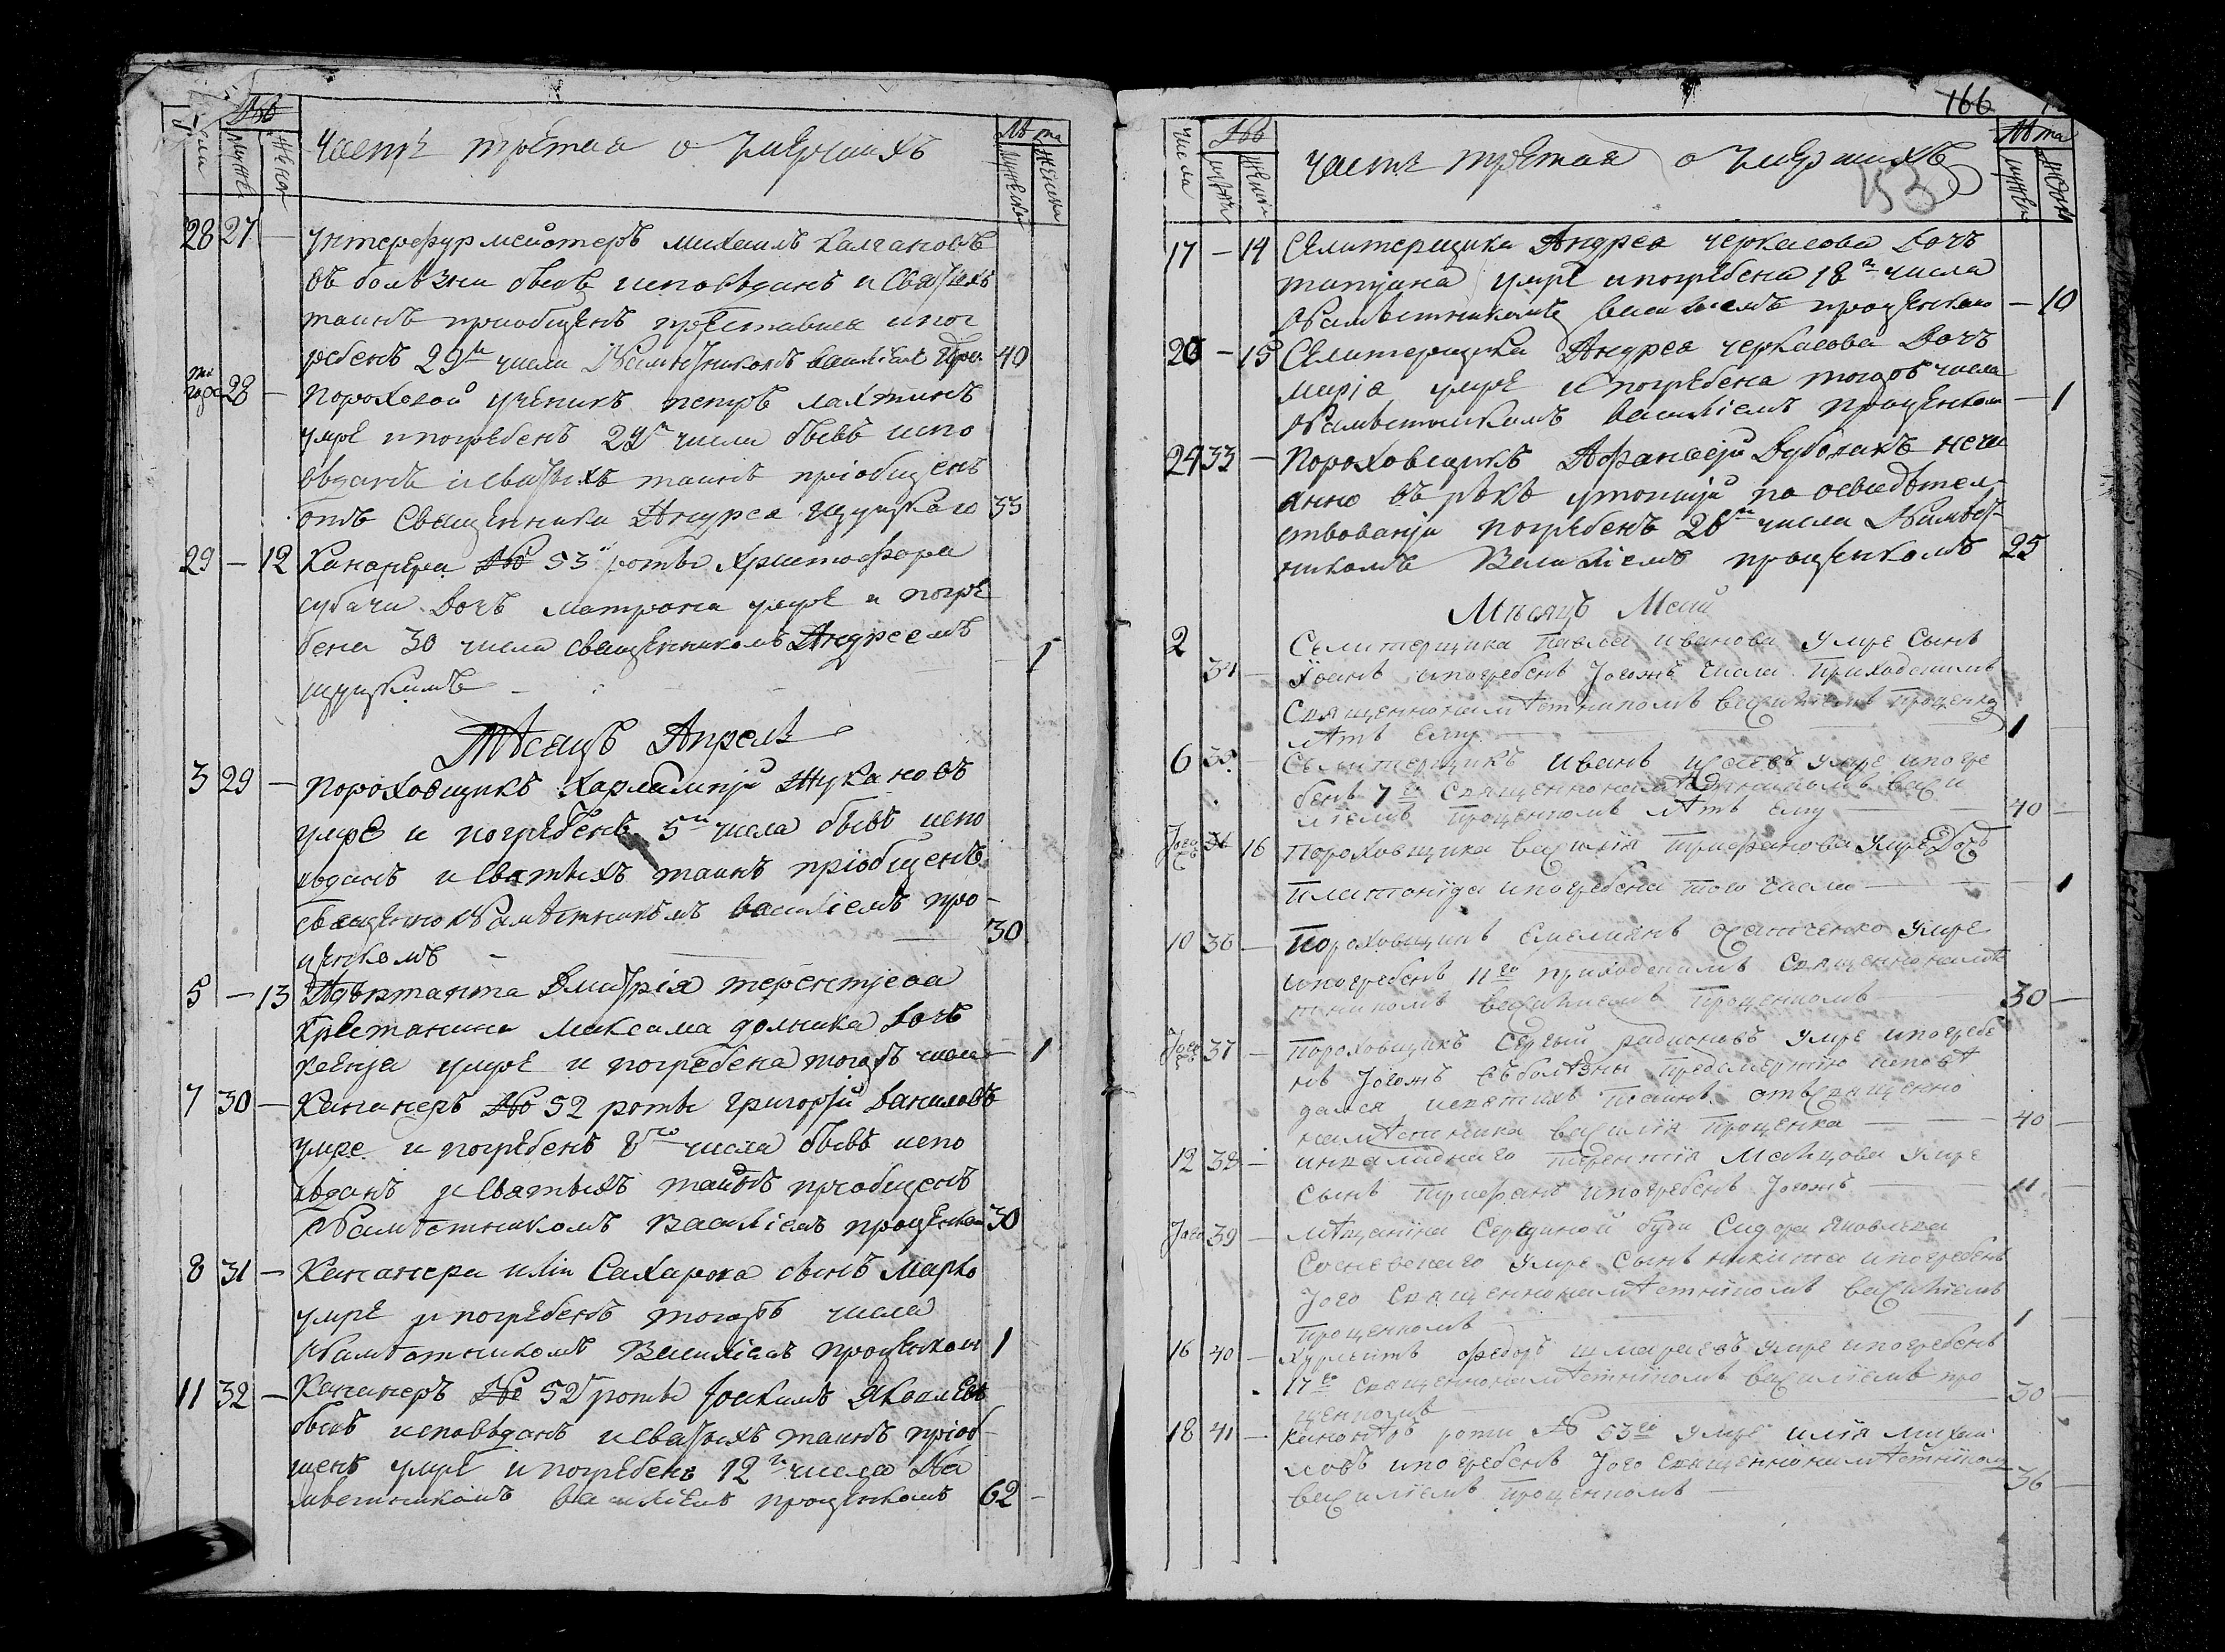 числа
№
мужс
женск
Часть третая о умершихъ
Лѣта
мужеска
женска
28 27 — Унтерфурмейстеръ михаилъ калгановъ
въ болѣзни бывъ исповѣданъ и святыхъ
таинъ приобщенъ преставися и пог
ребенъ 29 числа Намѣстникомъ василіемъ про 40
28 — Пороховой ученикъ петръ лахтинъ
умре и погребенъ 29 числа бывъ испо
вѣданъ и святыхъ таинъ пріобщенъ
отъ Священника Андрея 33
29 — 12 Канонера № 53 роты Христофора
дочь матрона умре и погре
бена 30 числа священникомъ Андреемъ — 1
Мѣсяцъ Апрель
3 29 — Пороховщикъ Харлампій Жукановъ
умре и погребенъ 5 числа бывъ испо
вѣданъ и святыхъ таинъ пріобщенъ
священнонамѣстникомъ василіемъ про- 30
ценкомъ —
5 — 13 Адъютанта Дмитрія терентјева
крестянина максима долника дочь
ксенја умре и погребена тогожъ числа — 1
7 30 — Канонеръ № 52 роты григорій даниловъ
умре и погребенъ 8го числа бывъ испо
вѣданъ и святыхъ таинъ приобщенъ
Намѣстникомъ Василіемъ проценкомъ 30
8 31 — Канонера иліи Сахарова сынъ Марко
умре и погребенъ тогожъ числа
Намѣстникомъ Василіемъ проценкомъ 1
11 32 — Канонеръ № 52 роты Јоакимъ Яковлевъ
бывъ исповѣданъ и святыхъ таинъ пріоб-
щенъ умре и погребенъ 12 числа На
мѣстникомъ василіемъ проценкомъ 62 —
166
числа
№
мужс
женск
часть третая о умершихъ
153
Лѣта
17 — 14 Селитерщика Андрея черкасова дочь
татјана умре и погребена 18 числа
Намѣстникомъ василіемъ проценкомъ — 10
20 — 15 Селитерщика Андрея черкасова дочь
марја умре и погребена тогожъ числа
Намѣстникомъ василіемъ проценкомъ — 1
24 33 — Пороховщикъ Афанасій Дубовикъ неча
янно въ рѣкѣ утопшій по освидѣтел-
ствованји погребенъ 26 числа Намѣст-
никомъ Василіемъ проценкомъ 25
Мѣсяцъ Маій
2 Селитерщика Павла иванова умре сынъ
34 — Іоанъ и погребенъ Јогожъ числа приходскимъ
священнонамѣстникомъ василіемъ проценко
лѣтъ ему — 1
6 35 — Селитерщикъ Иванъ умре и погре
бенъ 7го Священнонамѣстникомъ васи
ліемъ проценкомъ лѣтъ ему — 40 —
Јого 16 Пороховщика василія Трифанова умре дочь
Платонида и погребена того числа — 1
10 36 — Пороховщикъ Емелиянъ умре
и погребенъ 11го приходскимъ священнонамѣс
тникомъ василиемъ проценкомъ — 30 —
Јого 37 — Пороховщикъ Сергѣй радионовъ умре и погребе
нъ Јогожъ въ болѣзны предсмертно исповѣ
дался и святыхъ таинъ отъ священно
намѣстника василія Проценка — 40 —
12 38 — инвалиднаго терентія Малцова умре
сынъ Трифанъ и погребенъ Јогожъ — 11 —
Јого 39 — мѣщанина Середыной буди Сидора Яковлева
умре сынъ никита и погребенъ
Јого Священнонамѣстникомъ василіемъ
Проценкомъ — 1 —
16 40 — федоръ умре и погребенъ
17го священнонамѣстникомъ василіемъ про
ценкомъ — 30 —
18 41 — Канонѣръ роты № 53го умре илія михай
ловъ и погребенъ Јого священнонамѣстником
василіемъ проценкомъ — 36 —